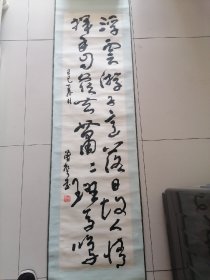 浮雲游子意落日故人情
揮手自茲去蕭々班馬鳴